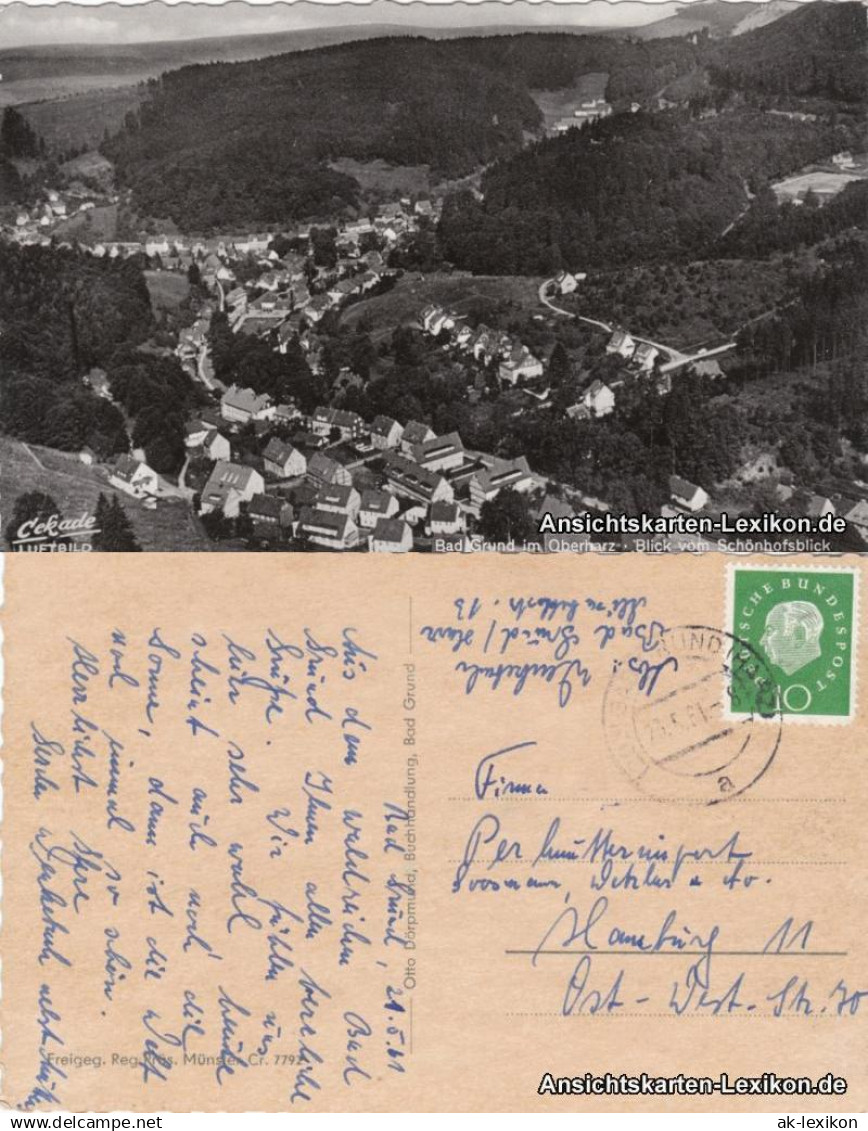 Cekade
LUFTBILD
Bad Grund im Oberharz · Blick vom Schönhofsblick
Ansichtskarten-Lexikon.de
Bad Grund / Harz
DEUTSCHE BUNDESPOST
10
a
Otto Dörpmund, Buchhandlung, Bad Grund
Bad Grund, 21.5.61
Aus dem waldreichen Bad
Grund Ihnen allen herzliche
Grüße. Wir fühlen uns
hier sehr wohl heute
scheint auch noch die
Sonne, dann ist die Welt
noch einmal so schön.
Herzlichst Ihre
Freigeg. Reg. Präs. Münster Cr. 7792
Firma
Hamburg 11
Ost-West-Str. 70
Ansichtskarten-Lexikon.de
www.ansichtskarten-lexikon.de
ak-lexikon